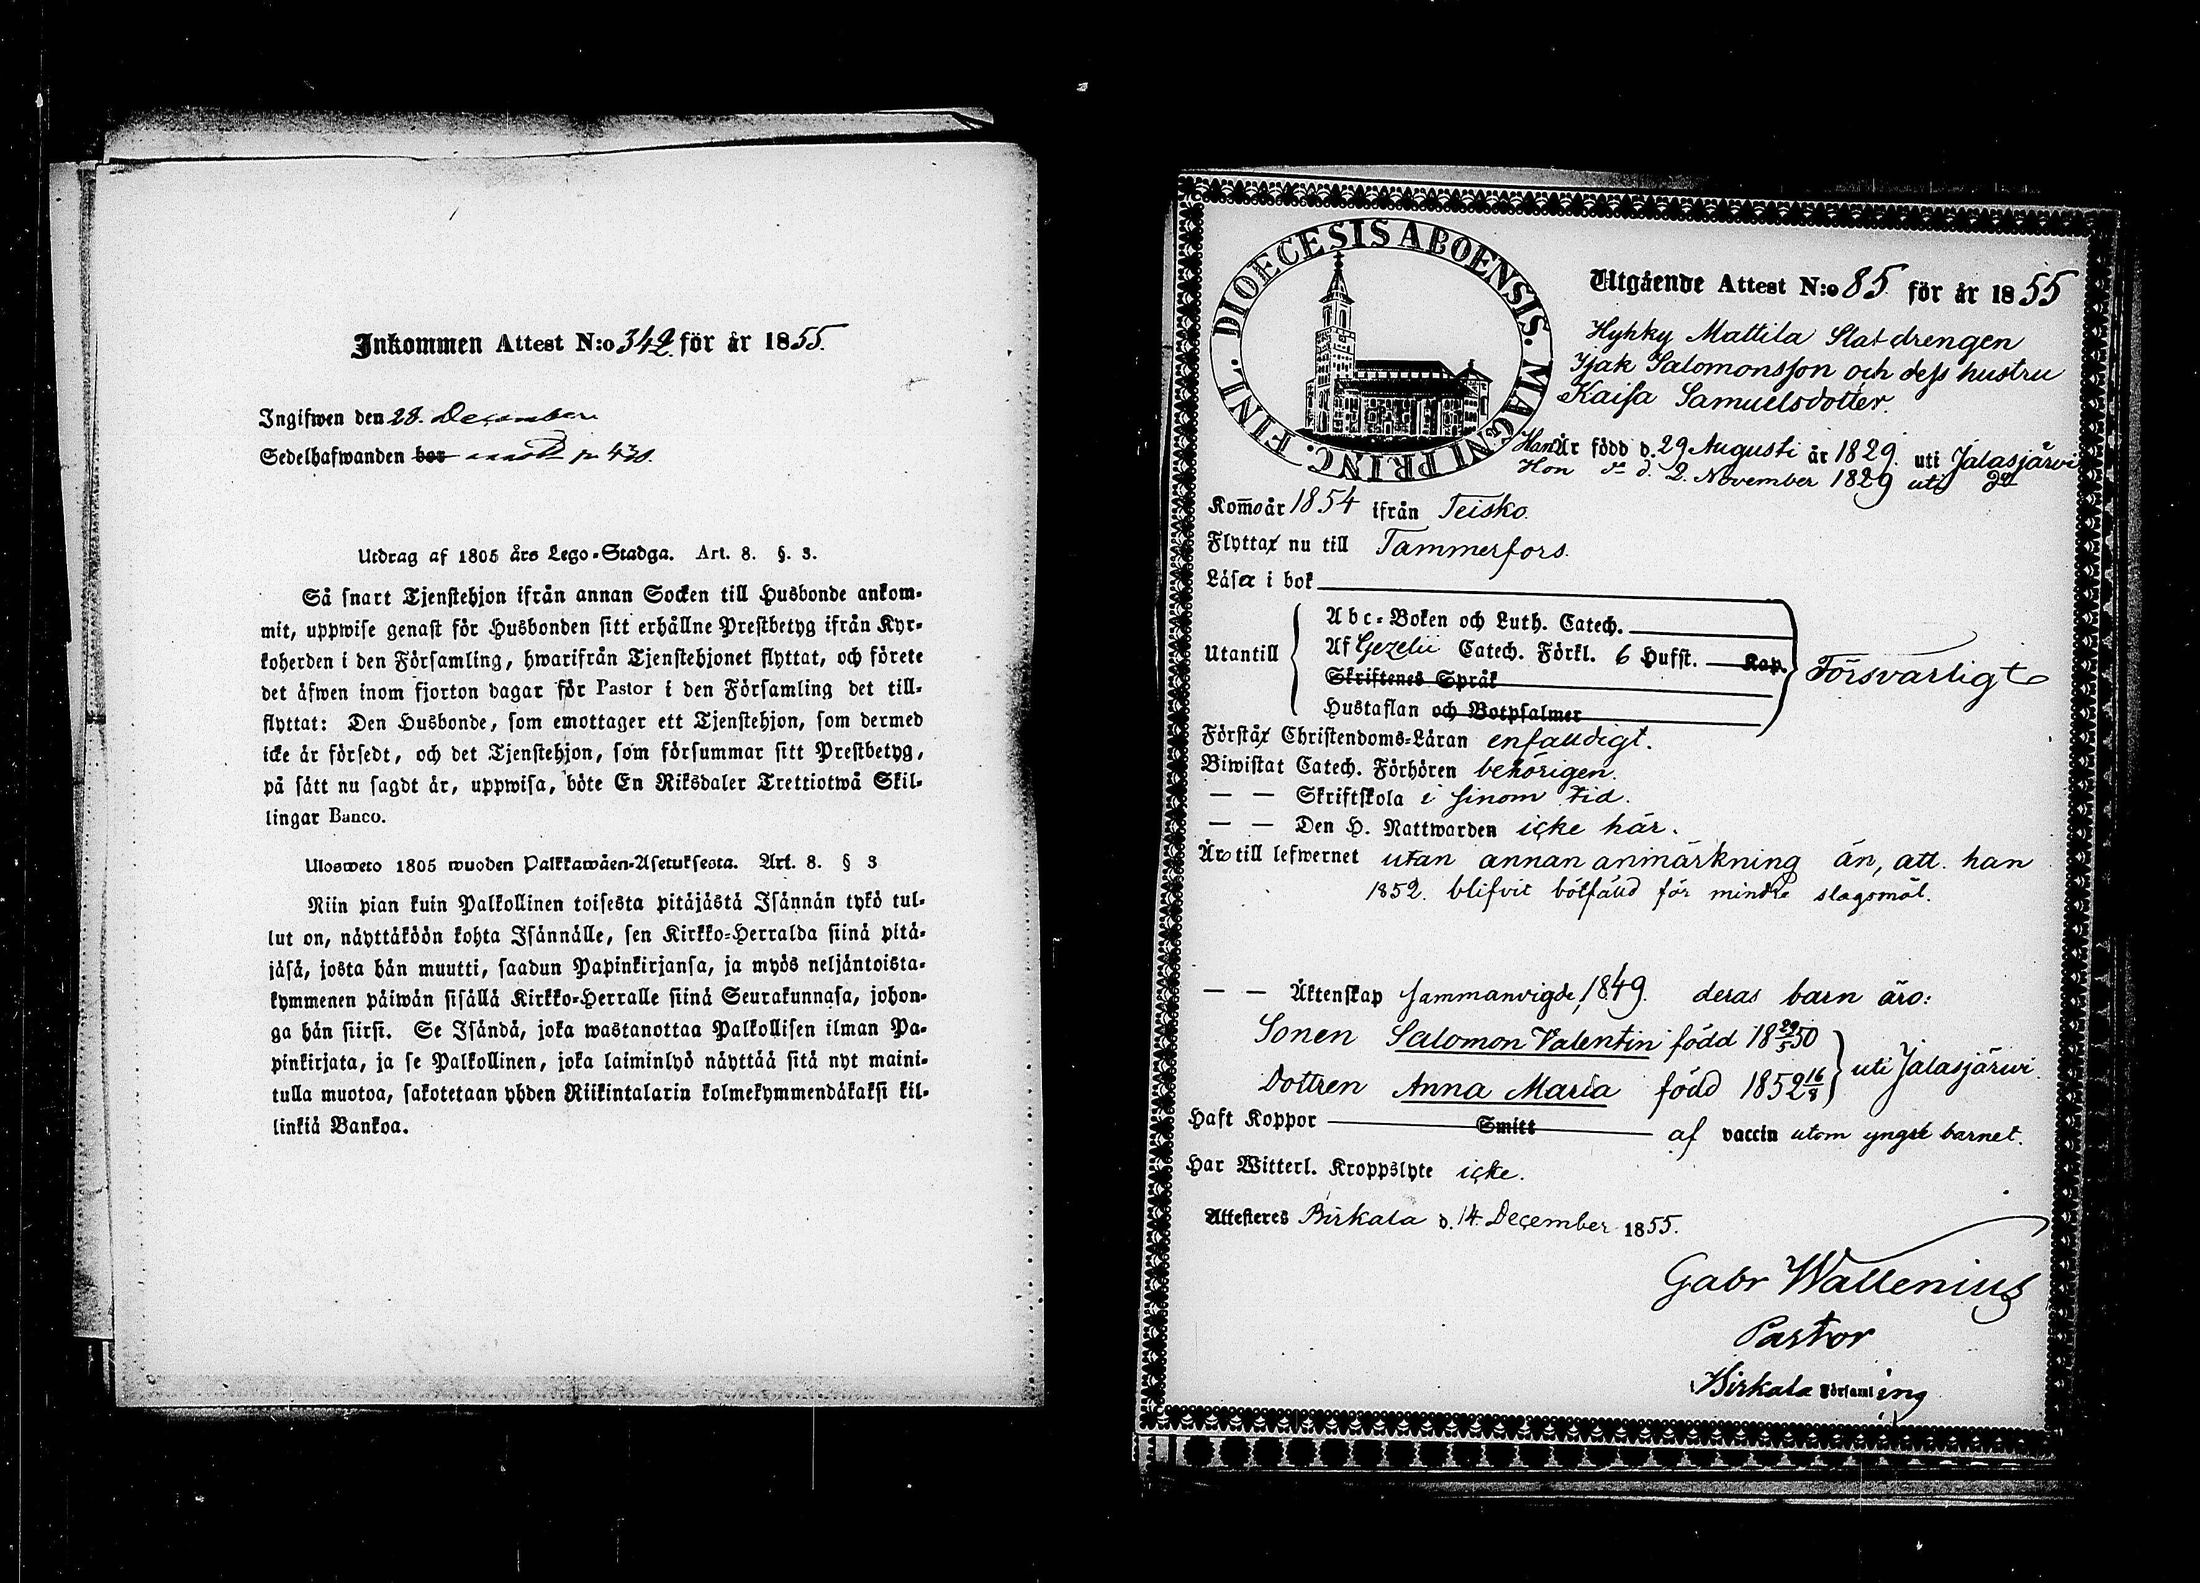 Inkommen Attest N:o 342. för år 1855.
Ingifwen den 28. December
Sedelhafwanden bor p. 430.
Utdrag af 1805 års Lego-Stadga. Art. 8. §. 3.
Så snart Tjenstehjon ifrån annan Socken till Husbonde ankom-
mit, uppwise genast för Husbonden sitt erhållne Prestbetyg ifrån Kyr-
koherden i den Församling, hwarifrån Tjenstehjonet flyttat, och förete
det äfwen inom fjorton dagar för Pastor i den Församling det till-
flyttat: Den Husbonde, som emottager ett Tjenstehjon, som dermed
icke är försedt, och det Tjenstehjon, som försummar sitt Prestbetyg,
på sätt nu sagdt är, uppwisa, böte En Riksdaler Trettiotwå Skil-
lingar Banco.
Ulosweto 1805 wuoden Palkkawäen-Asetuksesta. Art. 8. § 3
Niin pian kuin Palkollinen toisesta pitäjästä Isännän tykö tul-
lut on, näyttäköön kohta Isännälle, sen Kirkko-Herralda siinä pitä-
jäsä, josta hän muutti, saadun Papinkirjansa, ja myös neljäntoista-
kymmenen päiwän sisällä Kirkko-Herralle siinä Seurakunnasa, johon-
ga hän siirsi. Se Isändä, joka wastanottaa Palkollisen ilman Pa-
pinkirjata, ja se Palkollinen, joka laiminlyö näyttää sitä nyt maini-
tulla muotoa, sakotetaan yhden Riikintalarin kolmekymmendäkaksi kil-
linkiä Bankoa.
DIOECESIS ABOENSIS. MAGNI PRINC. FINL.
Utgående Attest N:o 85 för år 1855
Hyhky Mattila Statdrengen
Isak Salomonsson och dess hustru
Kaisa Samuelsdotter.
Han Är född d. 29 Augusti år 1829. uti Jalasjärvi
Hon d:o d. 2. November 1829 uti d:o
Kom̅o år 1854 ifrån Teisko.
Flyttar nu till Tammerfors.
Läsa i bok
Utantill
Abc-Boken och Luth. Catech.
Af Gezelii Catech. Förkl. 6 Hufst. Kap.
Skriftenes Språk
Hustaflan och Botpsalmer
Försvarligt
Förstår Christendoms-Läran enfaldigt.
Biwistat Catech. Förhören behörigen.
— — Skriftskola i sinom tid.
— — Den H. Nattwarden icke här.
Äro till lefwernet utan annan anmärkning än, att han
1852. blifvit bötfälld för mindre slagsmål.
— — Äktenskap sammanvigde, 1849. deras barn äro:
Sonen Salomon Valentin född 18 29/5 50
Dottren Anna Maria född 1852 16/8
uti Jalasjärwi
Haft Koppor Smitt af vaccin utom yngst barnet.
Har Witterl. Kroppslyte icke.
Attesteres Birkala d. 14. December 1855.
Gabr Wallenius
Pastor
Birkala Församling